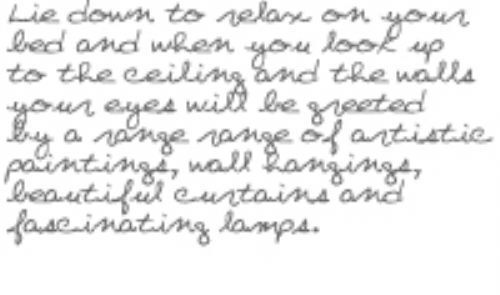 Lie down to relax on your
bed and when you look up
to the ceiling and the walls
your eyes will be greeted
by a range range of artistic
paintings, wall hangings,
beautiful curtains and
fascinating lamps.